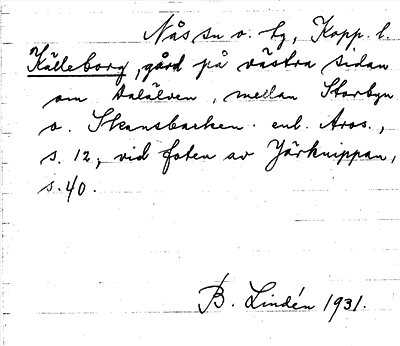 Nås sn o. tg, Kopp. l.
Källeborg, gård på västra sidan
om Dalälven, mellan Storbyn
o. Skansbacken enl. Aros.,
s. 12, vid foten av Järknippan,
s. 40.
B. Lindén 1931.